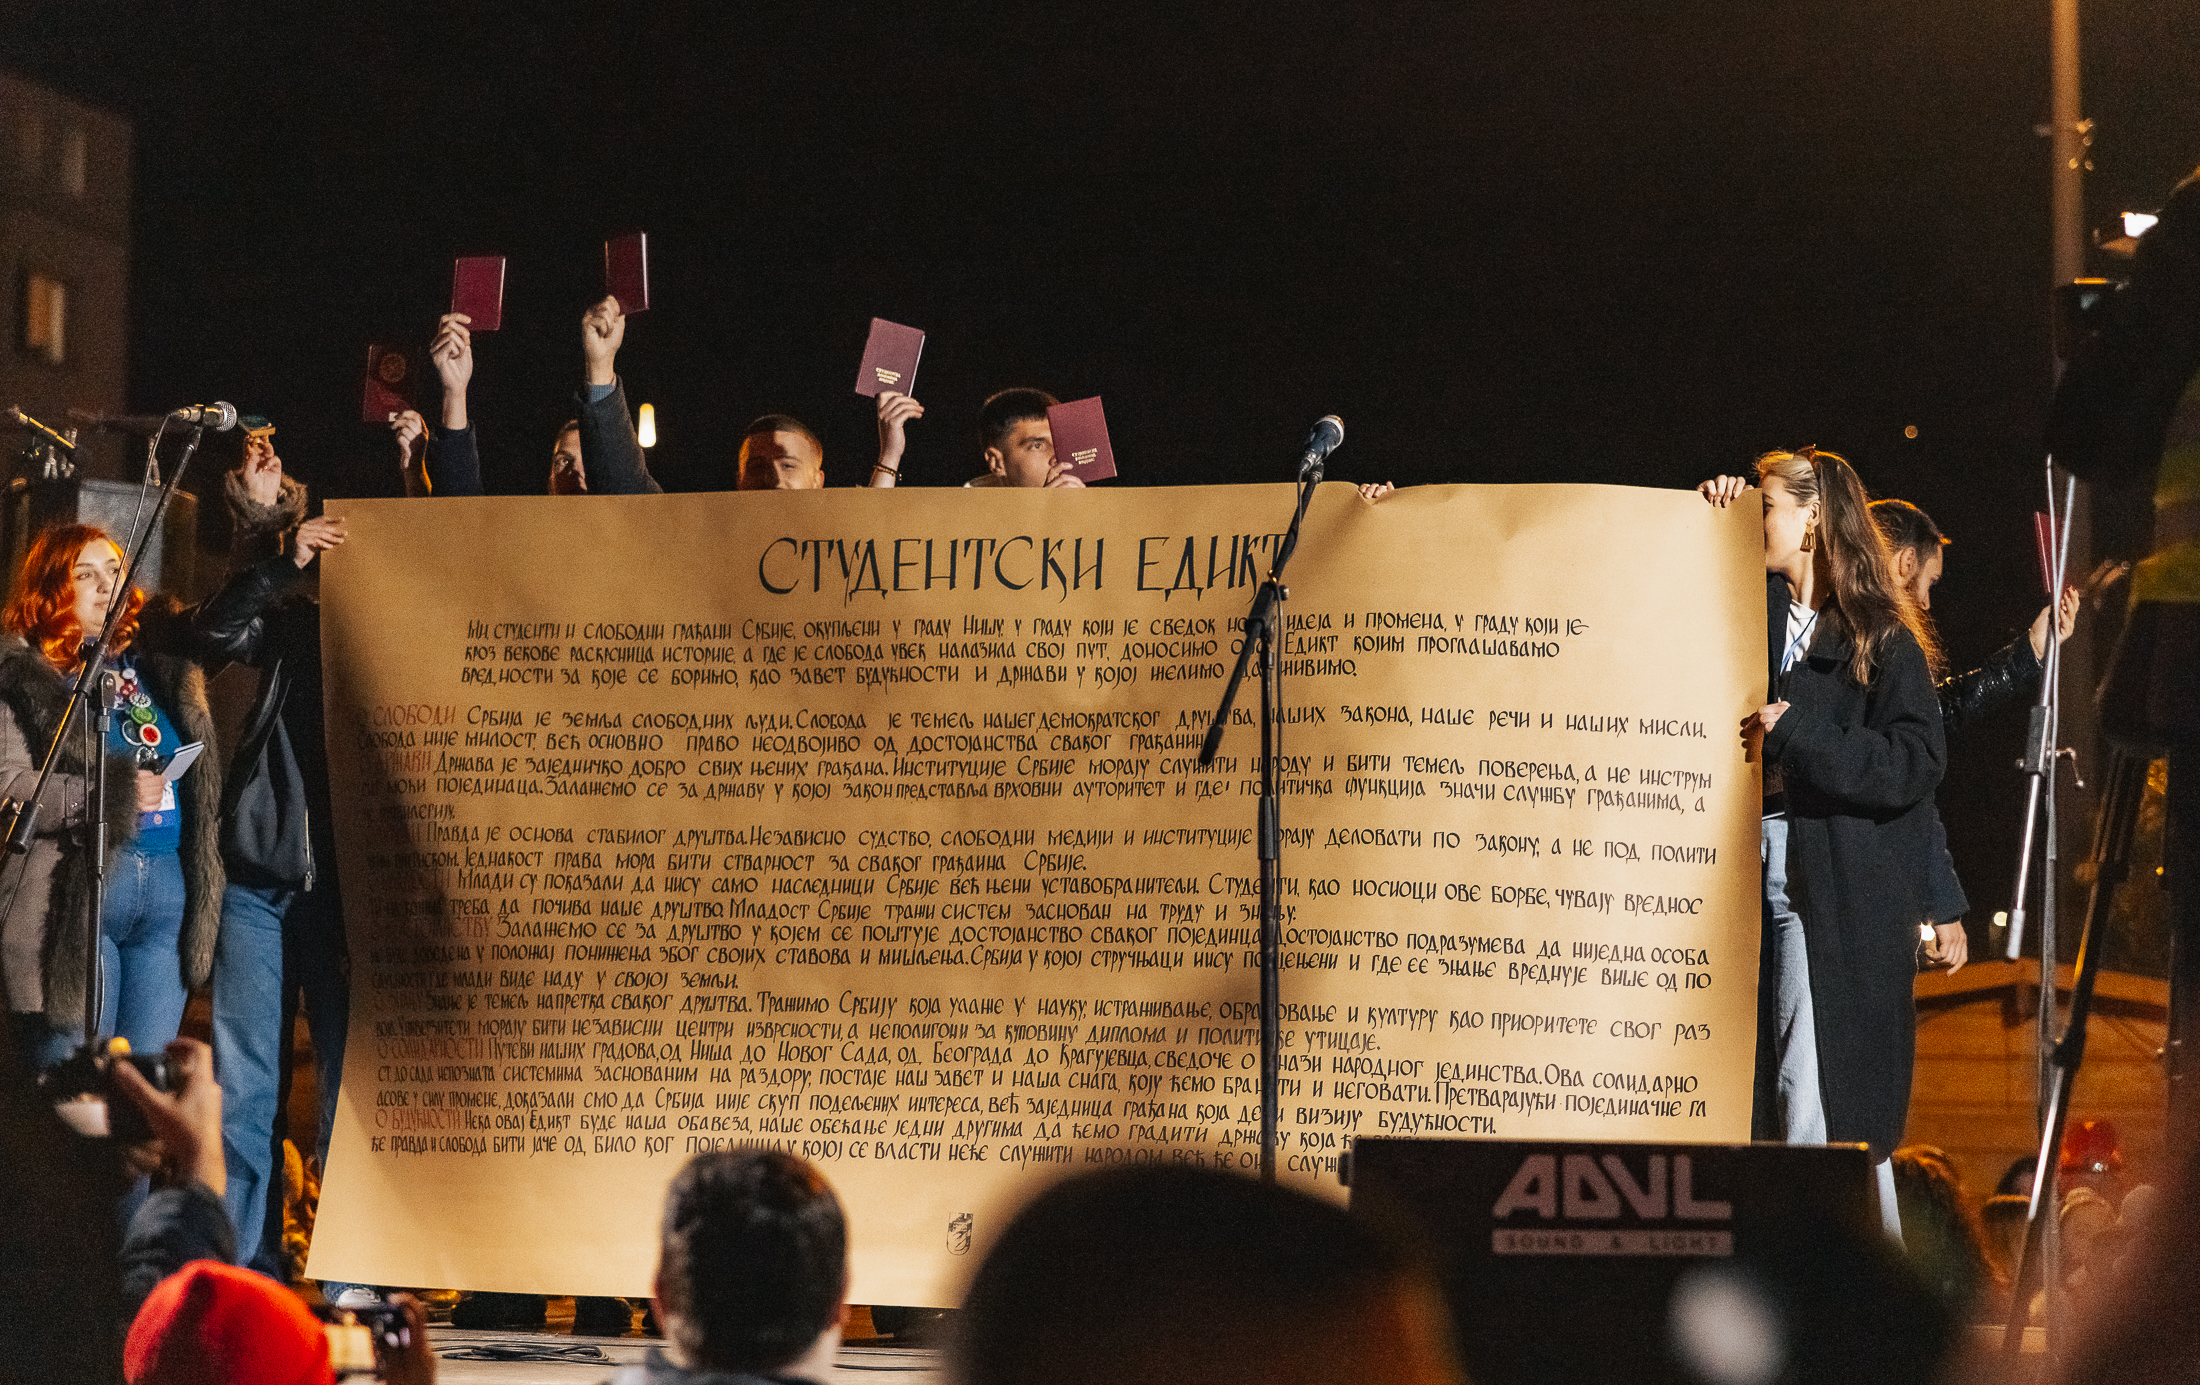 СТУДЕНТСКИ ЕДИКТ
МИ СТУДЕНТИ И СЛОБОДНИ ГРАЂАНИ СРБИЈЕ, ОКУПЉЕНИ У ГРАДУ НИШУ, У ГРАДУ КОЈИ ЈЕ СВЕДОК ИДЕЈА И ПРОМЕНА, У ГРАДУ КОЈИ ЈЕ
КРОЗ ВЕКОВЕ РАСКРСНИЦА ИСТОРИЈЕ, А ГДЕ ЈЕ СЛОБОДА УВЕК НАЛАЗИЛА СВОЈ ПУТ, ДОНОСИМО ЕДИКТ КОЈИМ ПРОГЛАШАВАМО
ВРЕДНОСТИ ЗА КОЈЕ СЕ БОРИМО, КАО ЗАВЕТ БУДУЋНОСТИ И ДРЖАВИ У КОЈОЈ ЖЕЛИМО ДА ЖИВИМО.
О СЛОБОДИ СРБИЈА ЈЕ ЗЕМЉА СЛОБОДНИХ ЉУДИ. СЛОБОДА ЈЕ ТЕМЕЉ НАШЕГ ДЕМОКРАТСКОГ ДРУШТВА, НАШИХ ЗАКОНА, НАШЕ РЕЧИ И НАШИХ МИСЛИ.
СЛОБОДА НИЈЕ МИЛОСТ, ВЕЋ ОСНОВНО ПРАВО НЕОДВОЈИВО ОД ДОСТОЈАНСТВА СВАКОГ
ДРЖАВИ ДРЖАВА ЈЕ ЗАЈЕДНИЧКО ДОБРО СВИХ ЊЕНИХ ГРАЂАНА. ИНСТИТУЦИЈЕ СРБИЈЕ МОРАЈУ СЛУЖИТИ НАРОДУ И БИТИ ТЕМЕЉ ПОВЕРЕЊА, А НЕ ИНСТРУМ
МОЋИ ПОЈЕДИНАЦА. ЗАЛАЖЕМО СЕ ЗА ДРЖАВУ У КОЈОЈ ЗАКОН ПРЕДСТАВЉА ВРХОВНИ АУТОРИТЕТ И ГДЕ ПОЛИТИЧКА ФУНКЦИЈА ЗНАЧИ СЛУЖБУ ГРАЂАНИМА, А
ПРАВДА ЈЕ ОСНОВА СТАБИЛОГ ДРУШТВА. НЕЗАВИСНО СУДСТВО, СЛОБОДНИ МЕДИЈИ И ИНСТИТУЦИЈЕ МОРАЈУ ДЕЛОВАТИ ПО ЗАКОНУ, А НЕ ПОД ПОЛИТИ
ЈЕДНАКОСТ ПРАВА МОРА БИТИ СТВАРНОСТ ЗА СВАКОГ ГРАЂАИНА СРБИЈЕ.
МЛАДИ СУ ПОКАЗАЛИ ДА НИСУ САМО НАСЛЕДНИЦИ СРБИЈЕ ВЕЋ ЊЕНИ УСТАВОБРАНИТЕЉИ. СТУДЕНТИ, КАО НОСИОЦИ ОВЕ БОРБЕ, ЧУВАЈУ ВРЕДНОС
ТРЕБА ДА ПОЧИВА НАШЕ ДРУШТВО. МЛАДОСТ СРБИЈЕ ТРАЖИ СИСТЕМ ЗАСНОВАН НА ТРУДУ И ЗНАЊУ.
ЗАЛАЖЕМО СЕ ЗА ДРУШТВО У КОЈЕМ СЕ ПОШТУЈЕ ДОСТОЈАНСТВО СВАКОГ ПОЈЕДИНЦА. ДОСТОЈАНСТВО ПОДРАЗУМЕВА ДА НИЈЕДНА ОСОБА
ДОВЕДЕНА У ПОЛОЖАЈ ПОНИЖЕЊА ЗБОГ СВОЈИХ СТАВОВА И МИШЉЕЊА. СРБИЈА У КОЈОЈ СТРУЧЊАЦИ НИСУ ПОТЦЕЊЕНИ И ГДЕ СЕ ЗНАЊЕ ВРЕДНУЈЕ ВИШЕ ОД ПО
ГДЕ МЛАДИ ВИДЕ НАДУ У СВОЈОЈ ЗЕМЉИ.
ЗНАЊЕ ЈЕ ТЕМЕЉ НАПРЕТКА СВАКОГ ДРУШТВА. ТРАЖИМО СРБИЈУ КОЈА УЛАЖЕ У НАУКУ, ИСТРАЖИВАЊЕ, ОБРАЗОВАЊЕ И КУЛТУРУ КАО ПРИОРИТЕТЕ СВОГ РАЗ
ВОЈА. УНИВЕРЗИТЕТИ МОРАЈУ БИТИ НЕЗАВИСНИ ЦЕНТРИ ИЗВРСНОСТИ, А НЕ ПОЛИГОНИ ЗА КУПОВИНУ ДИПЛОМА И ПОЛИТИЧКЕ УТИЦАЈЕ.
О СОЛИДАРНОСТИ ПУТЕВИ НАШИХ ГРАДОВА, ОД НИША ДО НОВОГ САДА, ОД БЕОГРАДА ДО КРАГУЈЕВЦА, СВЕДОЧЕ О СНАЗИ НАРОДНОГ ЈЕДИНСТВА. ОВА СОЛИДАРНО
СТ, ДО САДА НЕПОЗНАТА СИСТЕМИМА ЗАСНОВАНИМ НА РАЗДОРУ, ПОСТАЈЕ НАШ ЗАВЕТ И НАША СНАГА, КОЈУ ЋЕМО БРАНИТИ И НЕГОВАТИ. ПРЕТВАРАЈУЋИ ПОЈЕДИНАЧНЕ ГЛ
АСОВЕ У СИЛУ ПРОМЕНЕ, ДОКАЗАЛИ СМО ДА СРБИЈА НИЈЕ СКУП ПОДЕЉЕНИХ ИНТЕРЕСА, ВЕЋ ЗАЈЕДНИЦА ГРАЂАНА КОЈА ДЕЛИ ВИЗИЈУ БУДУЋНОСТИ.
О БУДУЋНОСТИ НЕКА ОВАЈ ЕДИКТ БУДЕ НАША ОБАВЕЗА, НАШЕ ОБЕЋАЊЕ ЈЕДНИ ДРУГИМА ДА ЋЕМО ГРАДИТИ ДРЖАВУ КОЈА
ЋЕ ПРАВДА И СЛОБОДА БИТИ ЈАЧЕ ОД БИЛО КОГ ПОЈЕДИНЦА, У КОЈОЈ СЕ ВЛАСТИ НЕЋЕ СЛУЖИТИ НАРОДОМ, ВЕЋ ЋЕ ОНЕ
ADVL
SOUND & LIGHT